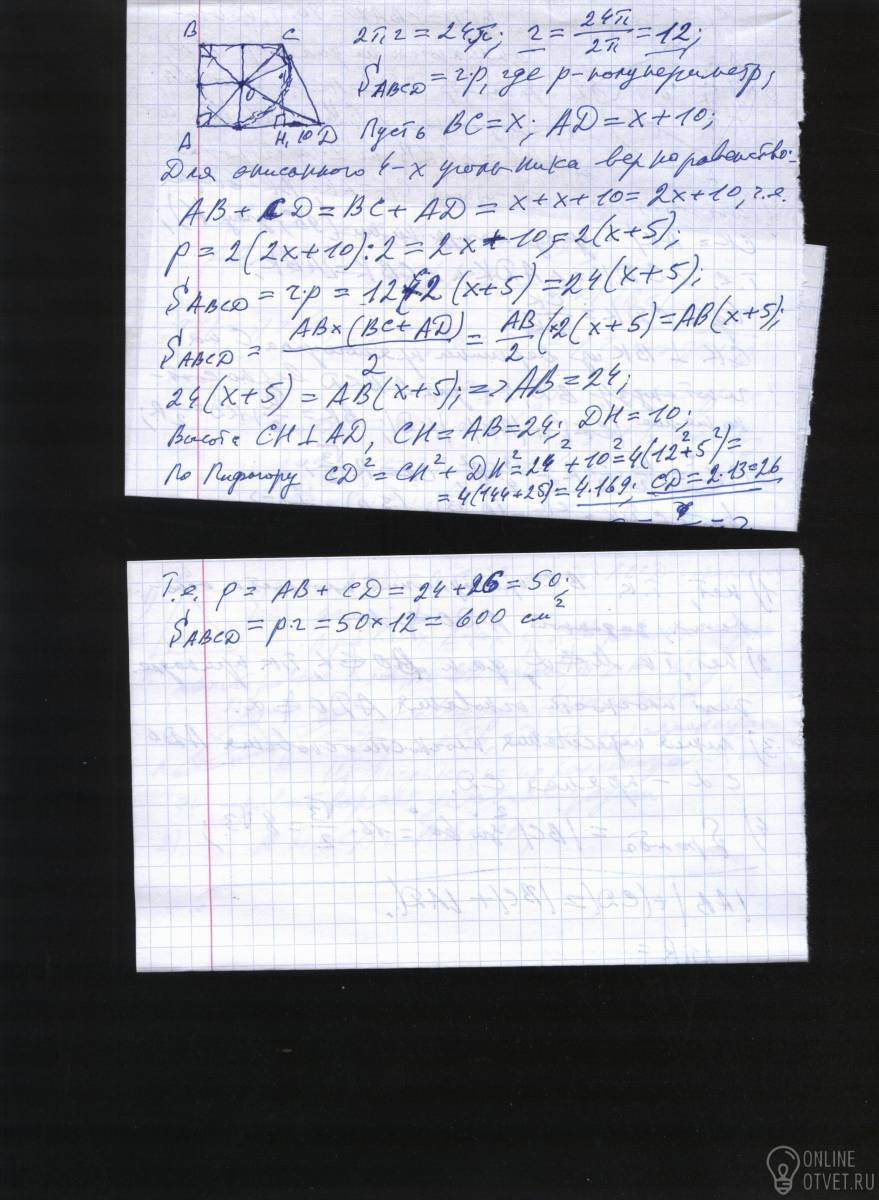 B C
O
A H, 10 D
2πr = 24π; r = 24π/2π = 12;
S_ABCD = r·p, где p-полупериметр;
Пусть BC = x; AD = x + 10;
Для описанного 4-х угольника верно равенство:
AB + CD = BC + AD = x + x + 10 = 2x + 10, т.е.
p = 2(2x+10):2 = 2x + 10 = 2(x+5);
S_ABCD = r·p = 12·2(x+5) = 24(x+5);
S_ABCD = AB×(BC+AD)/2 = AB/2 ×2(x+5) = AB(x+5);
24(x+5) = AB(x+5); => AB = 24;
Высота CH⊥AD, CH = AB = 24; DH = 10;
По Пифагору CD² = CH² + DH² = 24² + 10² = 4(12²+5²) =
= 4(144+25) = 4·169; CD = 2·13 = 26
Т.е. p = AB + CD = 24 + 26 = 50;
S_ABCD = p·r = 50×12 = 600 см²
ONLINE
OTVET.RU